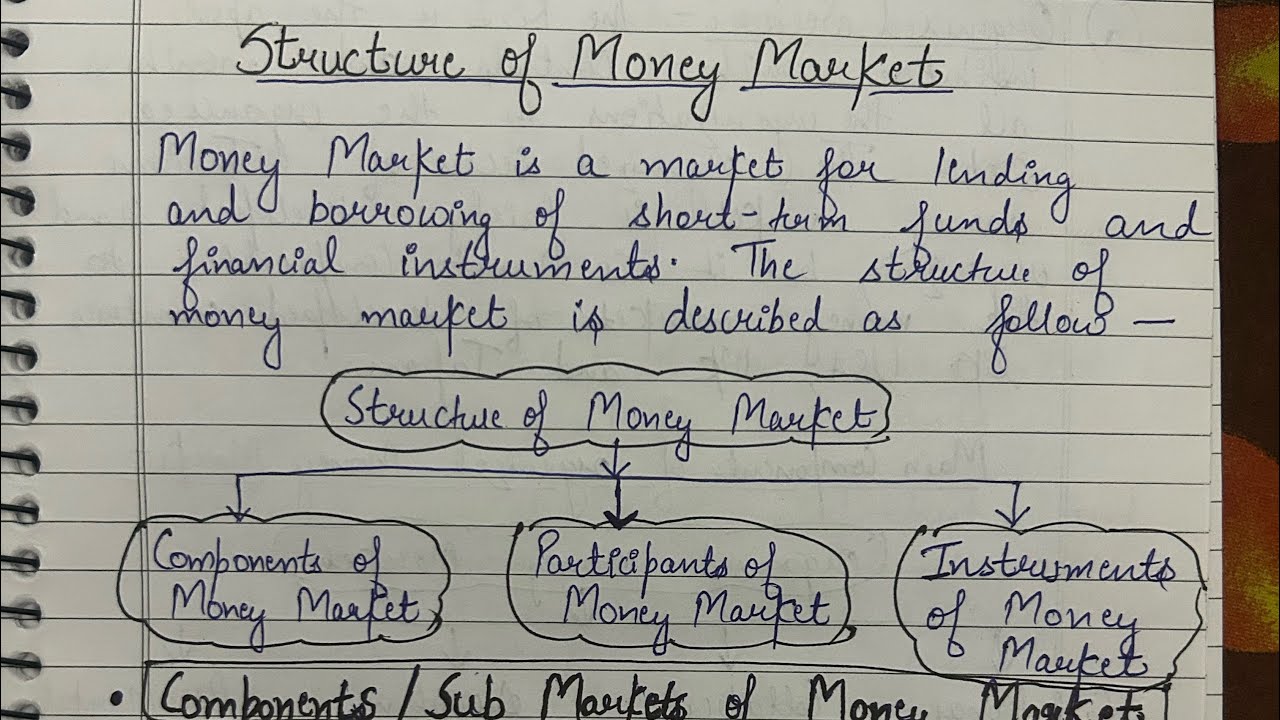 Structure of Money Market
Money Market is a market for lending
and borrowing of short-term funds and
financial instruments. The structure of
money market is described as follow —
Structure of Money Market
Components of
Money Market
Participants of
Money Market
Instruments
of Money
Market
• Components / Sub Markets of Money Market